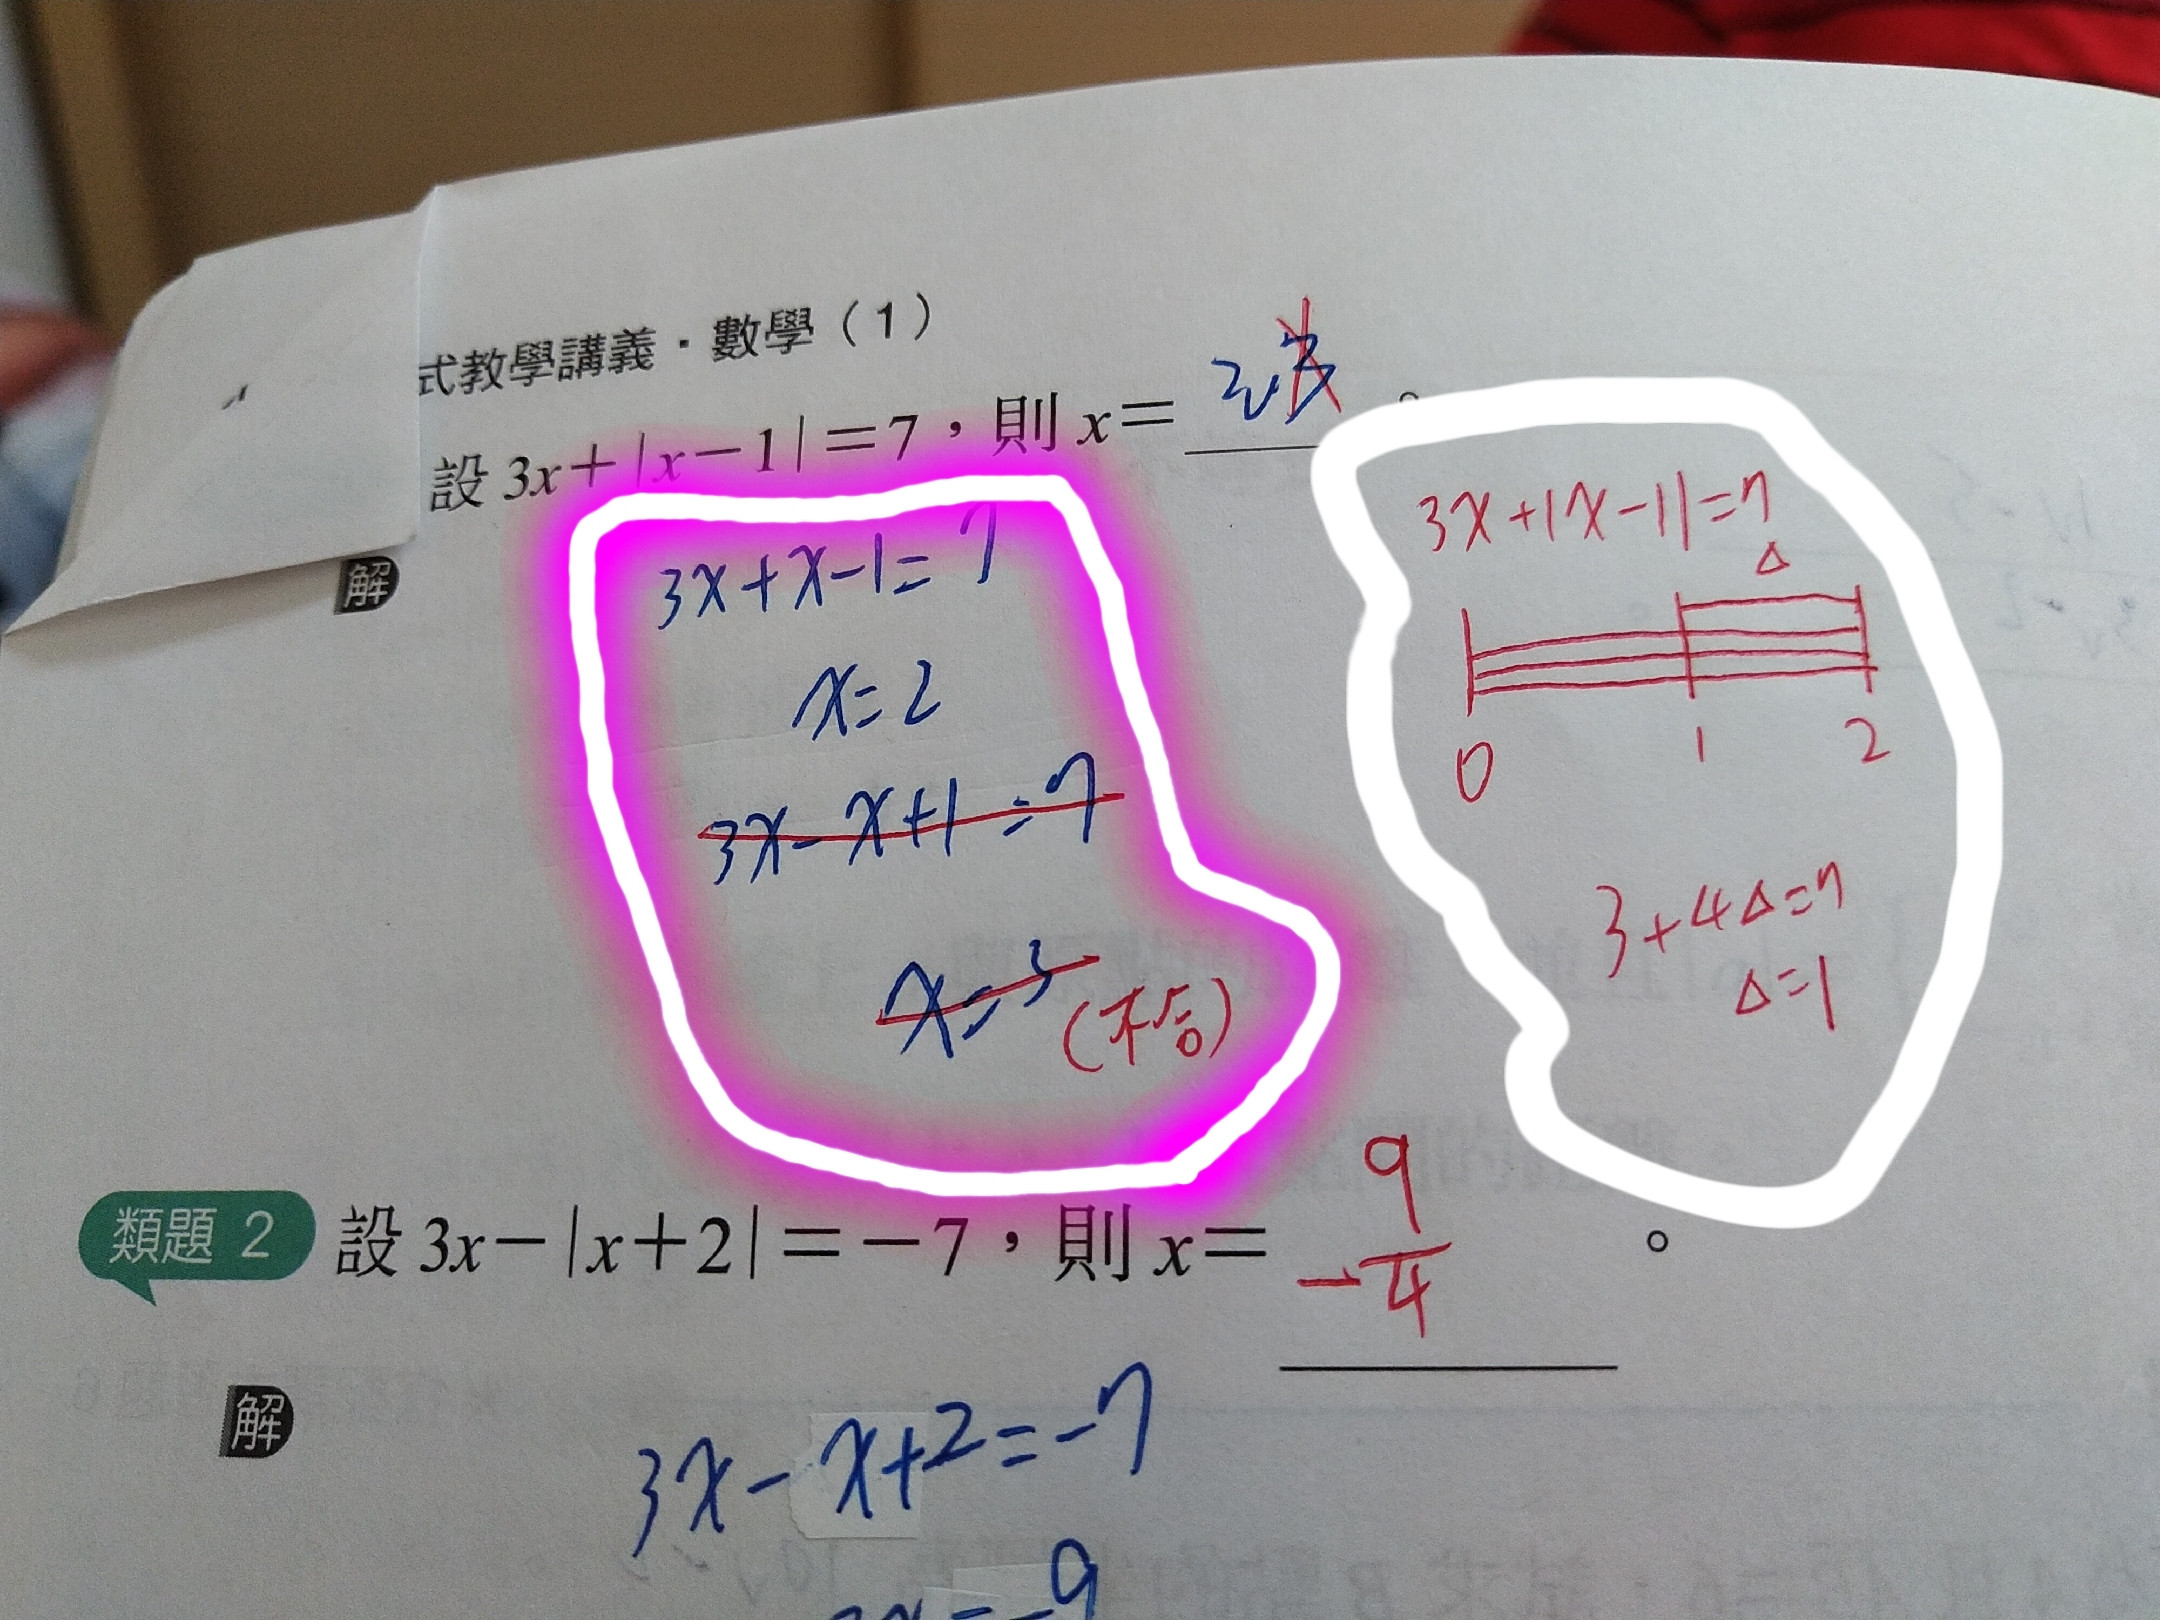 式教學講義・數學（1）
設 3x＋|x－1|＝7，則 x＝ 2 。
解
3x+x-1=7
x=2
3x-x+1=7
x=3 (不合)
3x+|x-1|=7
Δ
0 1 2
3+4Δ=7
Δ=1
類題 2 設 3x－|x＋2|＝－7，則 x＝ -9/4 。
解
3x-x+2=-7